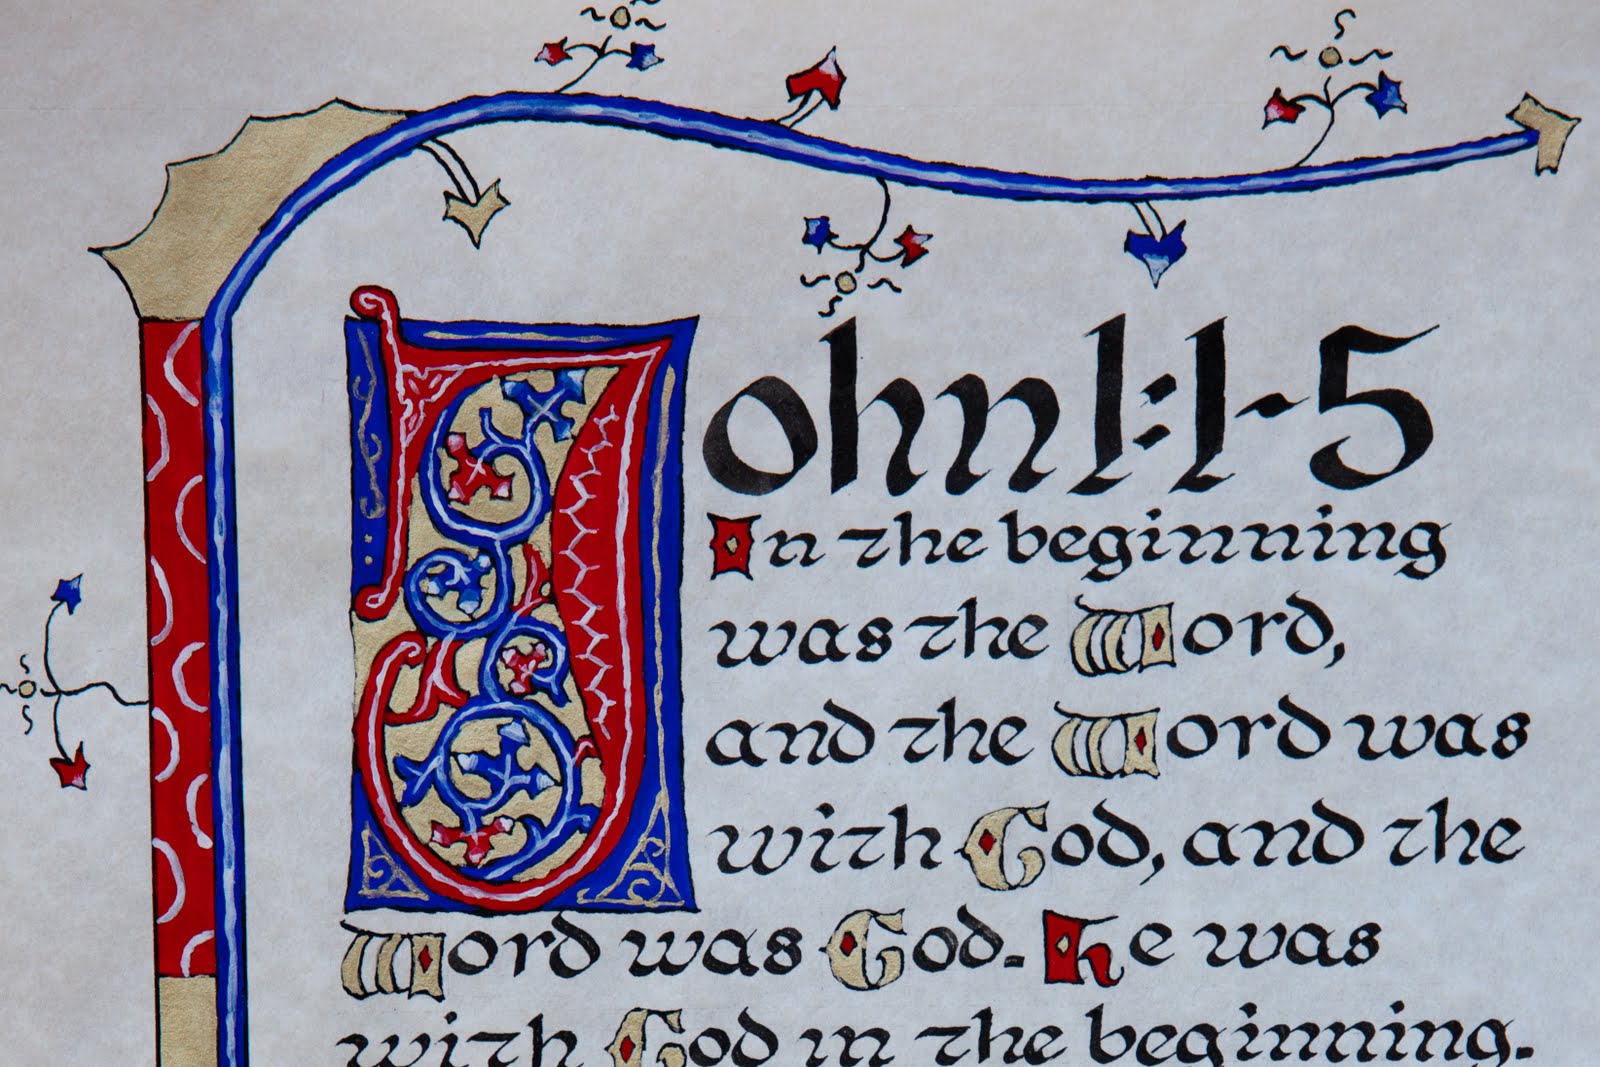 John 1:1-5
In the beginning
was the Word,
and the Word was
with God, and the
Word was God. He was
with God in the beginning.